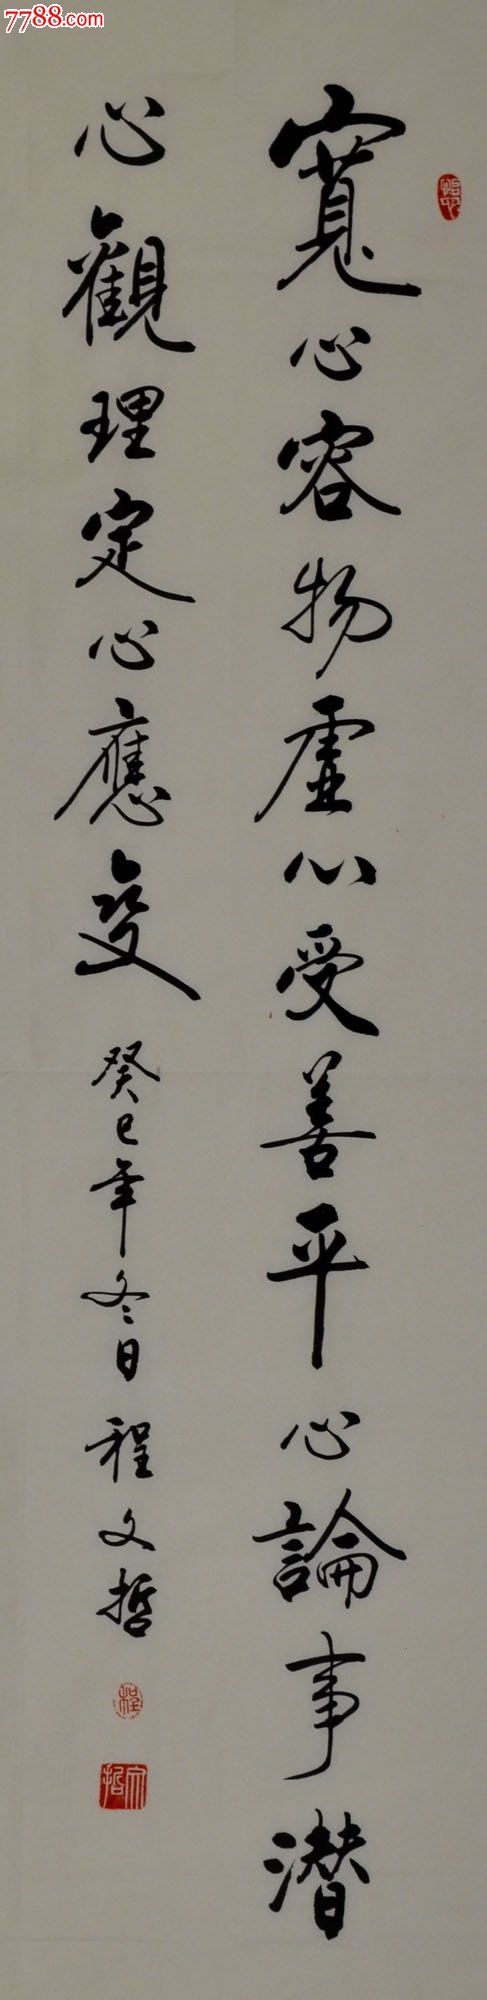 7788.com
寬心容物虛心受善平心論事潛
心觀理定心應變
癸巳年冬日 程文哲
程
文哲